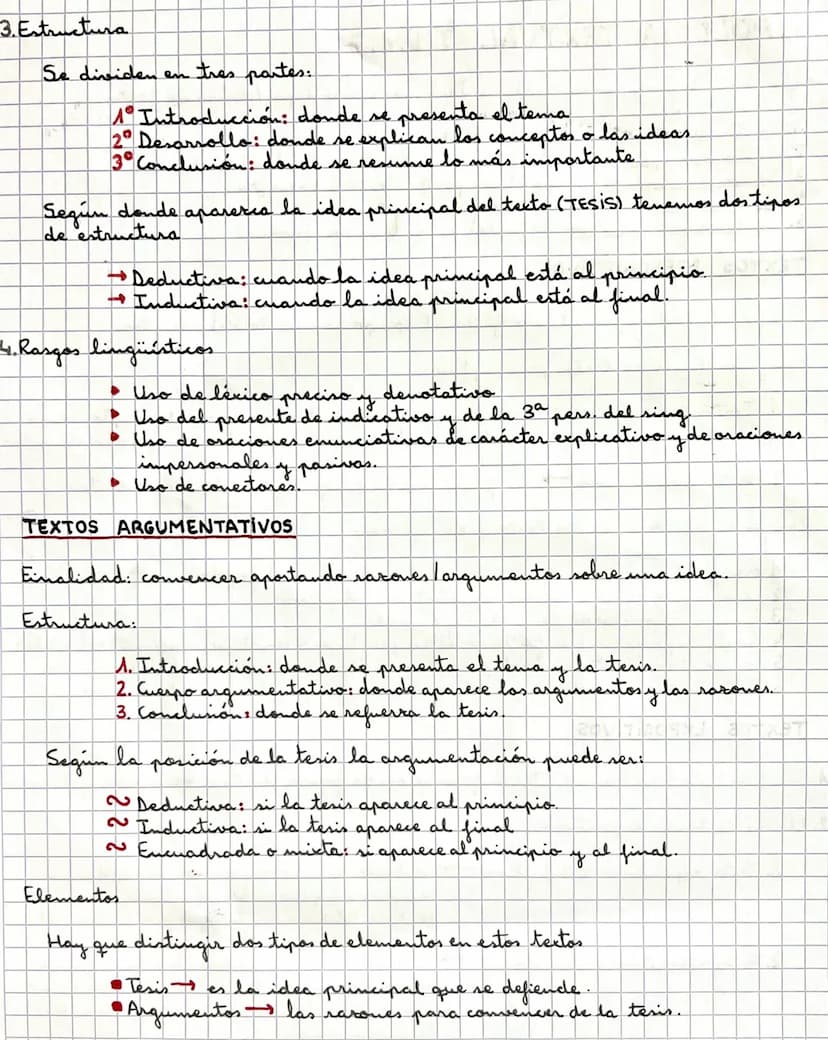 3. Estructura
Se dividen en tres partes:
1º Introducción: donde se presenta el tema
2º Desarrollo: donde se explican los conceptos o las ideas
3º Conclusión: donde se resume lo más importante
Según donde aparezca la idea principal del texto (TESIS) tenemos dos tipos
de estructura
→ Deductiva: cuando la idea principal está al principio.
→ Inductiva: cuando la idea principal está al final.
4. Rasgos lingüísticos
▸ Uso de léxico preciso y denotativo
▸ Uso del presente de indicativo y de la 3ª pers. del sing.
▸ Uso de oraciones enunciativas de carácter explicativo y de oraciones
impersonales y pasivas.
▸ Uso de conectores.
TEXTOS ARGUMENTATIVOS
Finalidad: convencer aportando razones/argumentos sobre una idea.
Estructura:
1. Introducción: donde se presenta el tema y la tesis.
2. Cuerpo argumentativo: donde aparece los argumentos y las razones.
3. Conclusión: donde se refuerza la tesis.
Según la posición de la tesis la argumentación puede ser:
~ Deductiva: si la tesis aparece al principio.
~ Inductiva: si la tesis aparece al final
~ Encuadrada o mixta: si aparece al principio y al final.
Elementos
Hay que distingir dos tipos de elementos en estos textos
▪ Tesis → es la idea principal que se defiende.
▪ Argumentos → las razones para convencer de la tesis.